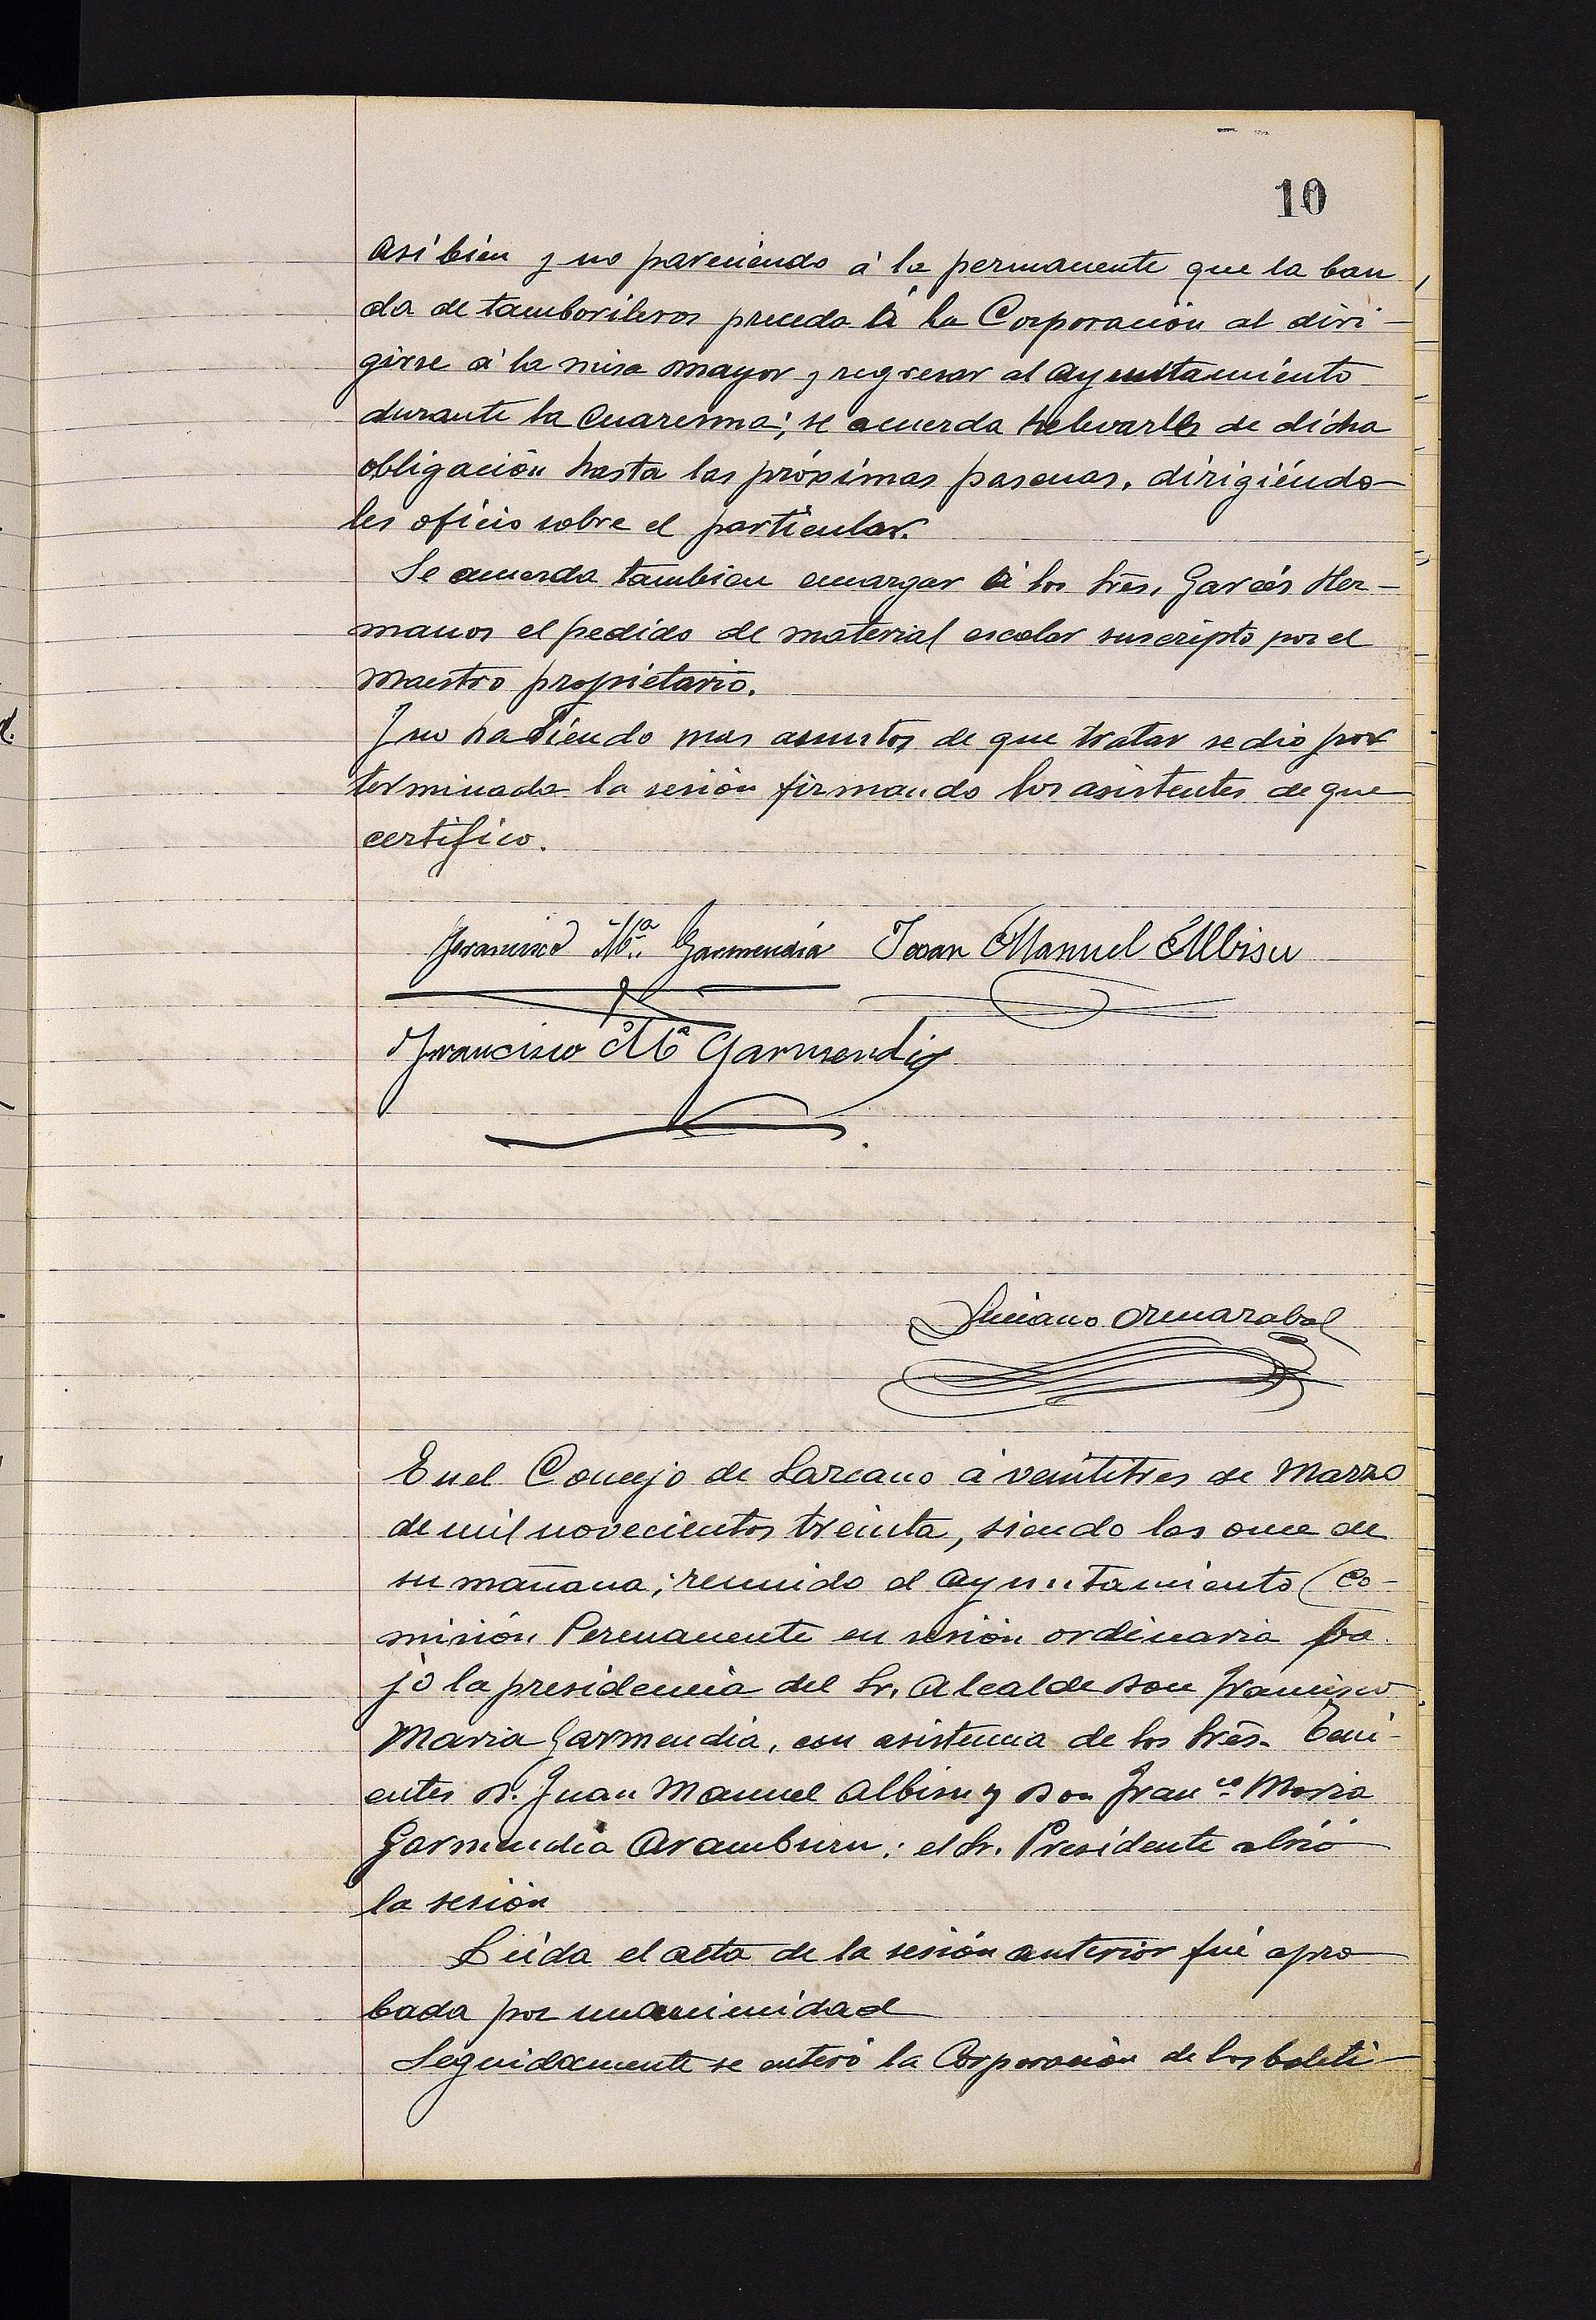 10
Asi bien y no pareciendo á la permanente que la ban
da de tamborileros preceda á la Corporación al diri-
girse á la misa mayor y regresar al Ayuntamiento
durante la cuaresma; se acuerda relevarles de dicha
obligación hasta las próximas pascuas, dirigiéndo-
les oficio sobre el particular.
Se acuerda tambien encargar á los Sres. Garcés Her-
manos el pedido de material escolar suscripto por el
maestro propietario.
Y no habiendo mas asuntos de que tratar se dio por
terminada la sesión firmando los asistentes de que
certifico.
Francisco Mª Garmendia Juan Manuel Albisu
Francisco Mª Garmendia
Luciano Ormazabal
En el Concejo de Lazcano á veintitres de Marzo
de mil novecientos treinta, siendo las once de
su mañana; reunido el Ayuntamiento (Co-
misión Permanente en sesión ordinaria ba
jo la presidencia del Sr. Alcalde Don Francisco
Maria Garmendia, con asistencia de los Sres. Teni-
entes D. Juan Manuel Albisu y Don Franco Maria
Garmendia Aramburu; el Sr. Presidente abrió
la sesión
Leida el acta de la sesión anterior fué apro
bada por unanimidad
Seguidamente se enteró la Corporación de los boleti-